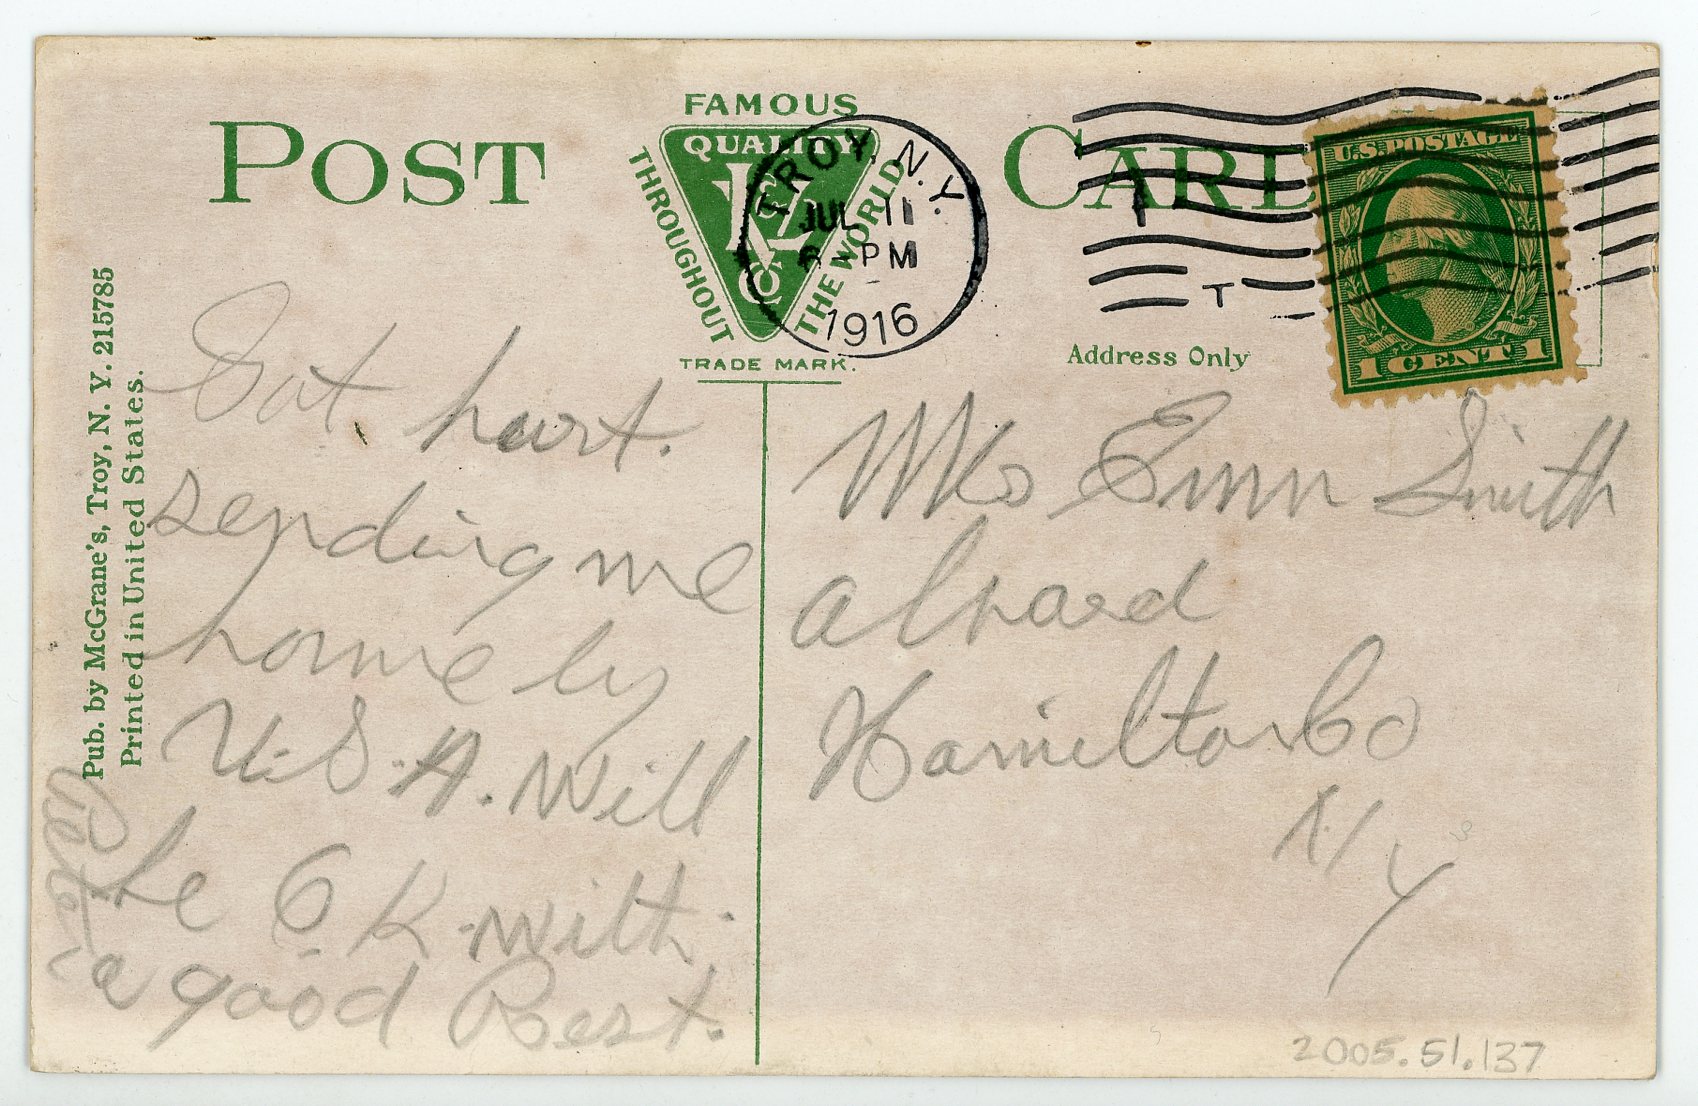 POST CARD
FAMOUS
QUALITY
THROUGHOUT
THE WORLD
TRADE MARK.
TROY, N.Y.
JUL 11
6 - PM
1916
1
T
U.S. POSTAGE
1 CENT 1
Address Only
Pub. by McGrane's, Troy, N. Y. 215785
Printed in United States.
Got hurt.
sending me
home by
U.S.A. Will
be O K. with
a good Rest.
Mrs Smith
Hamilton Co
N Y
2005.51.137